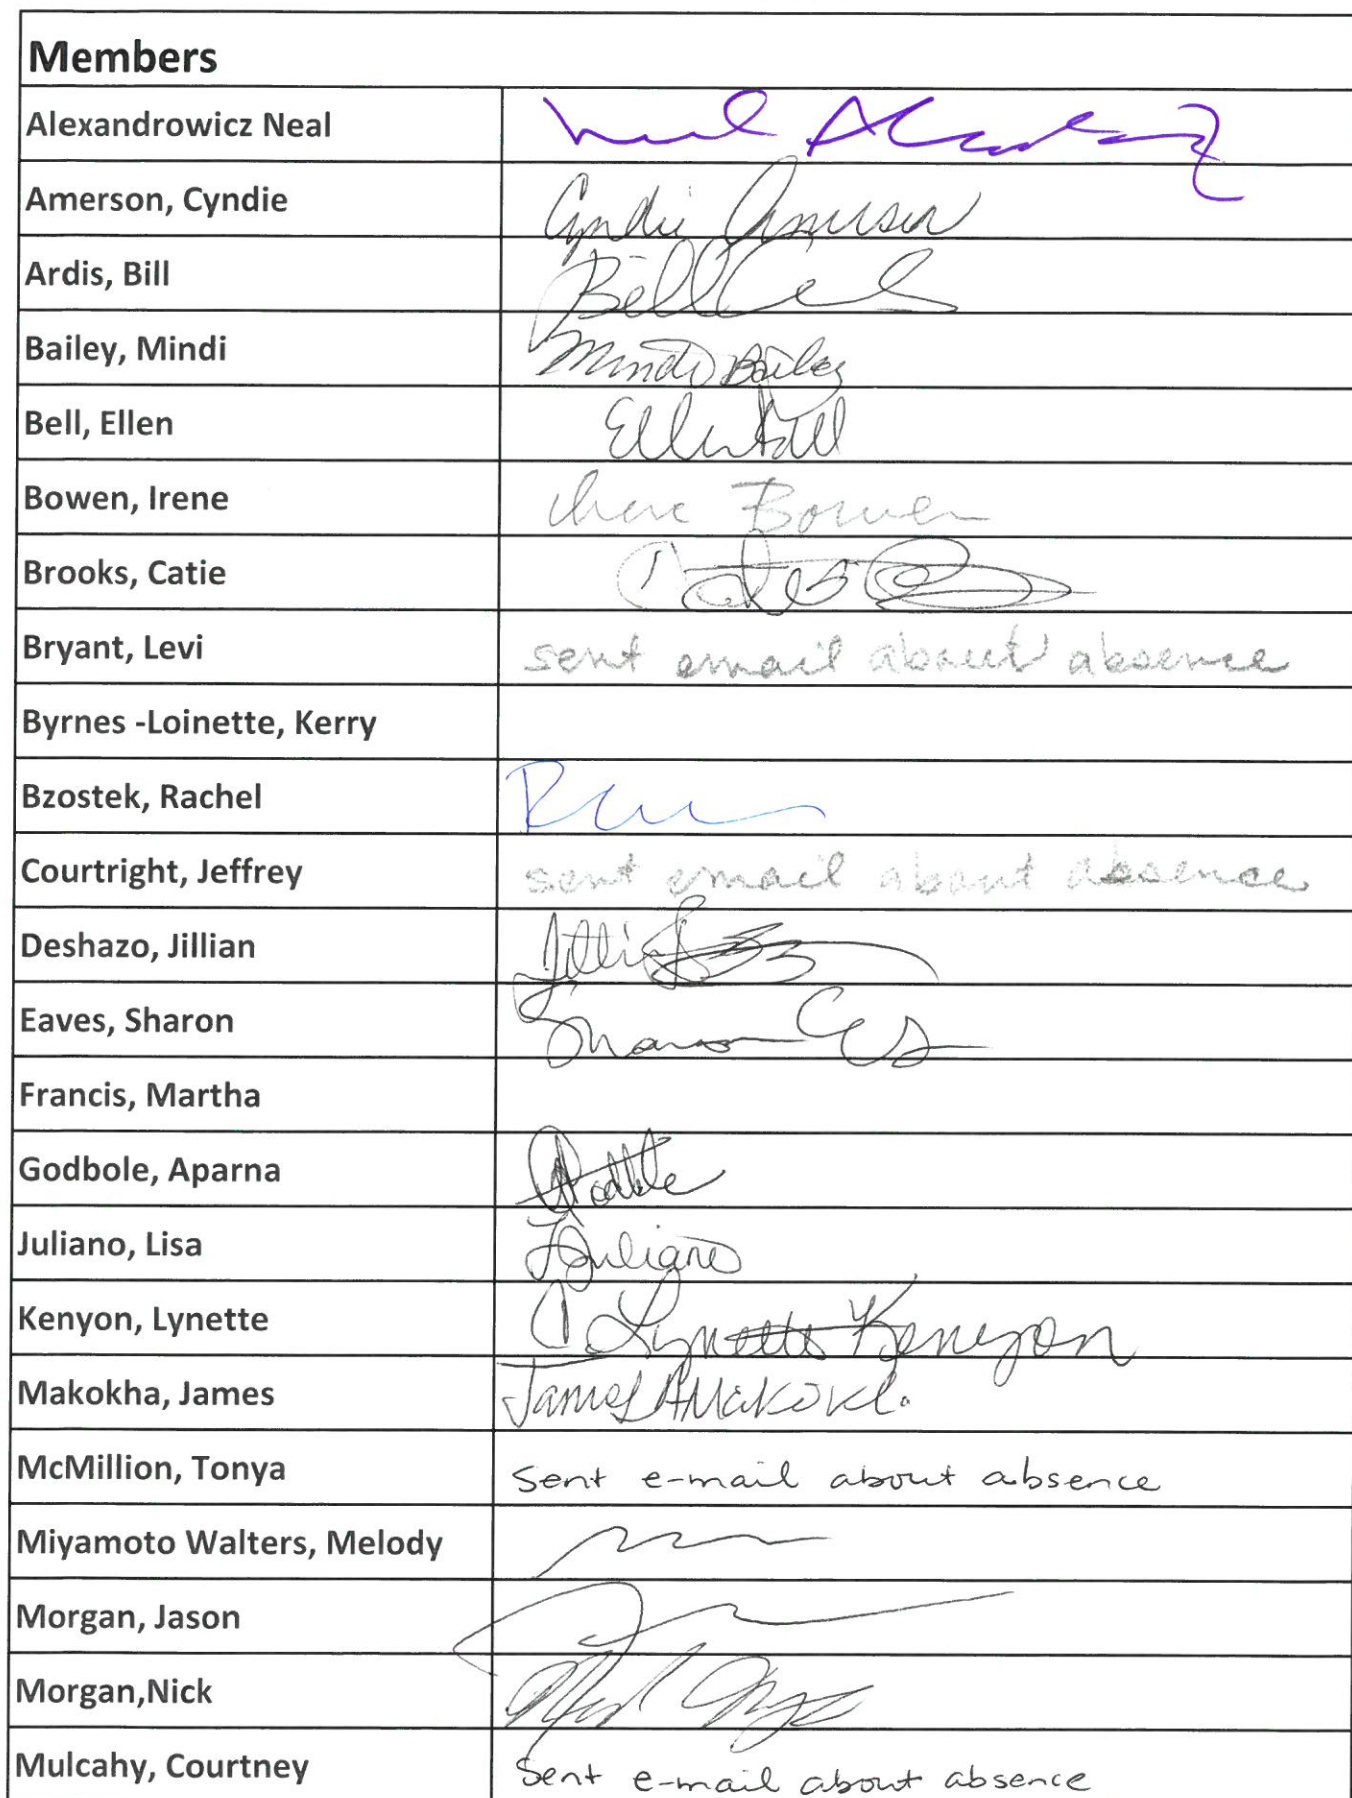 Members
Alexandrowicz Neal
Amerson, Cyndie Cyndie Amerson
Ardis, Bill Bill
Bailey, Mindi Mindi Bailey
Bell, Ellen Ellen Bell
Bowen, Irene Irene Bowen
Brooks, Catie
Bryant, Levi sent email about absence
Byrnes -Loinette, Kerry
Bzostek, Rachel
Courtright, Jeffrey sent email about absence
Deshazo, Jillian
Eaves, Sharon Sharon
Francis, Martha
Godbole, Aparna
Juliano, Lisa LJuliano
Kenyon, Lynette Lynette Kenyon
Makokha, James James
McMillion, Tonya Sent e-mail about absence
Miyamoto Walters, Melody
Morgan, Jason
Morgan,Nick
Mulcahy, Courtney Sent e-mail about absence